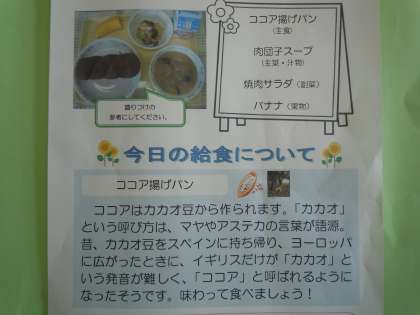 ココア揚げパン
(主食)
肉団子スープ
(主菜・汁物)
焼肉サラダ(副菜)
バナナ(果物)
盛りつけの
参考にしてください。
今日の給食について
ココア揚げパン
ココアはカカオ豆から作られます。「カカオ」
という呼び方は、マヤやアステカの言葉が語源。
昔、カカオ豆をスペインに持ち帰り、ヨーロッパ
に広がったときに、イギリスだけが「カカオ」と
いう発音が難しく、「ココア」と呼ばれるように
なったそうです。味わって食べましょう！